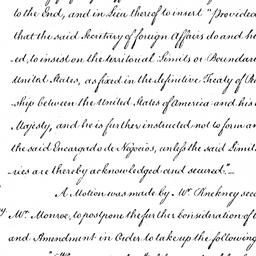 to the End, and in Lieu thereof to insert "Provided
that the said Secretary of foreign Affairs do and he
ed, to insist on the territorial Limits or Boundar
United States, as fixed in the definitive Treaty of
ship between the United States of America and his
Majesty, and he is further instructed not to form an
the said Encargado de Negocios, unless the said Limit
ries are thereby acknowledged and secured."
A Motion was made by Mr. Pinckney sec
Mr. Monroe, to postpone the further consideration of
and Amendment in Order to take up the following